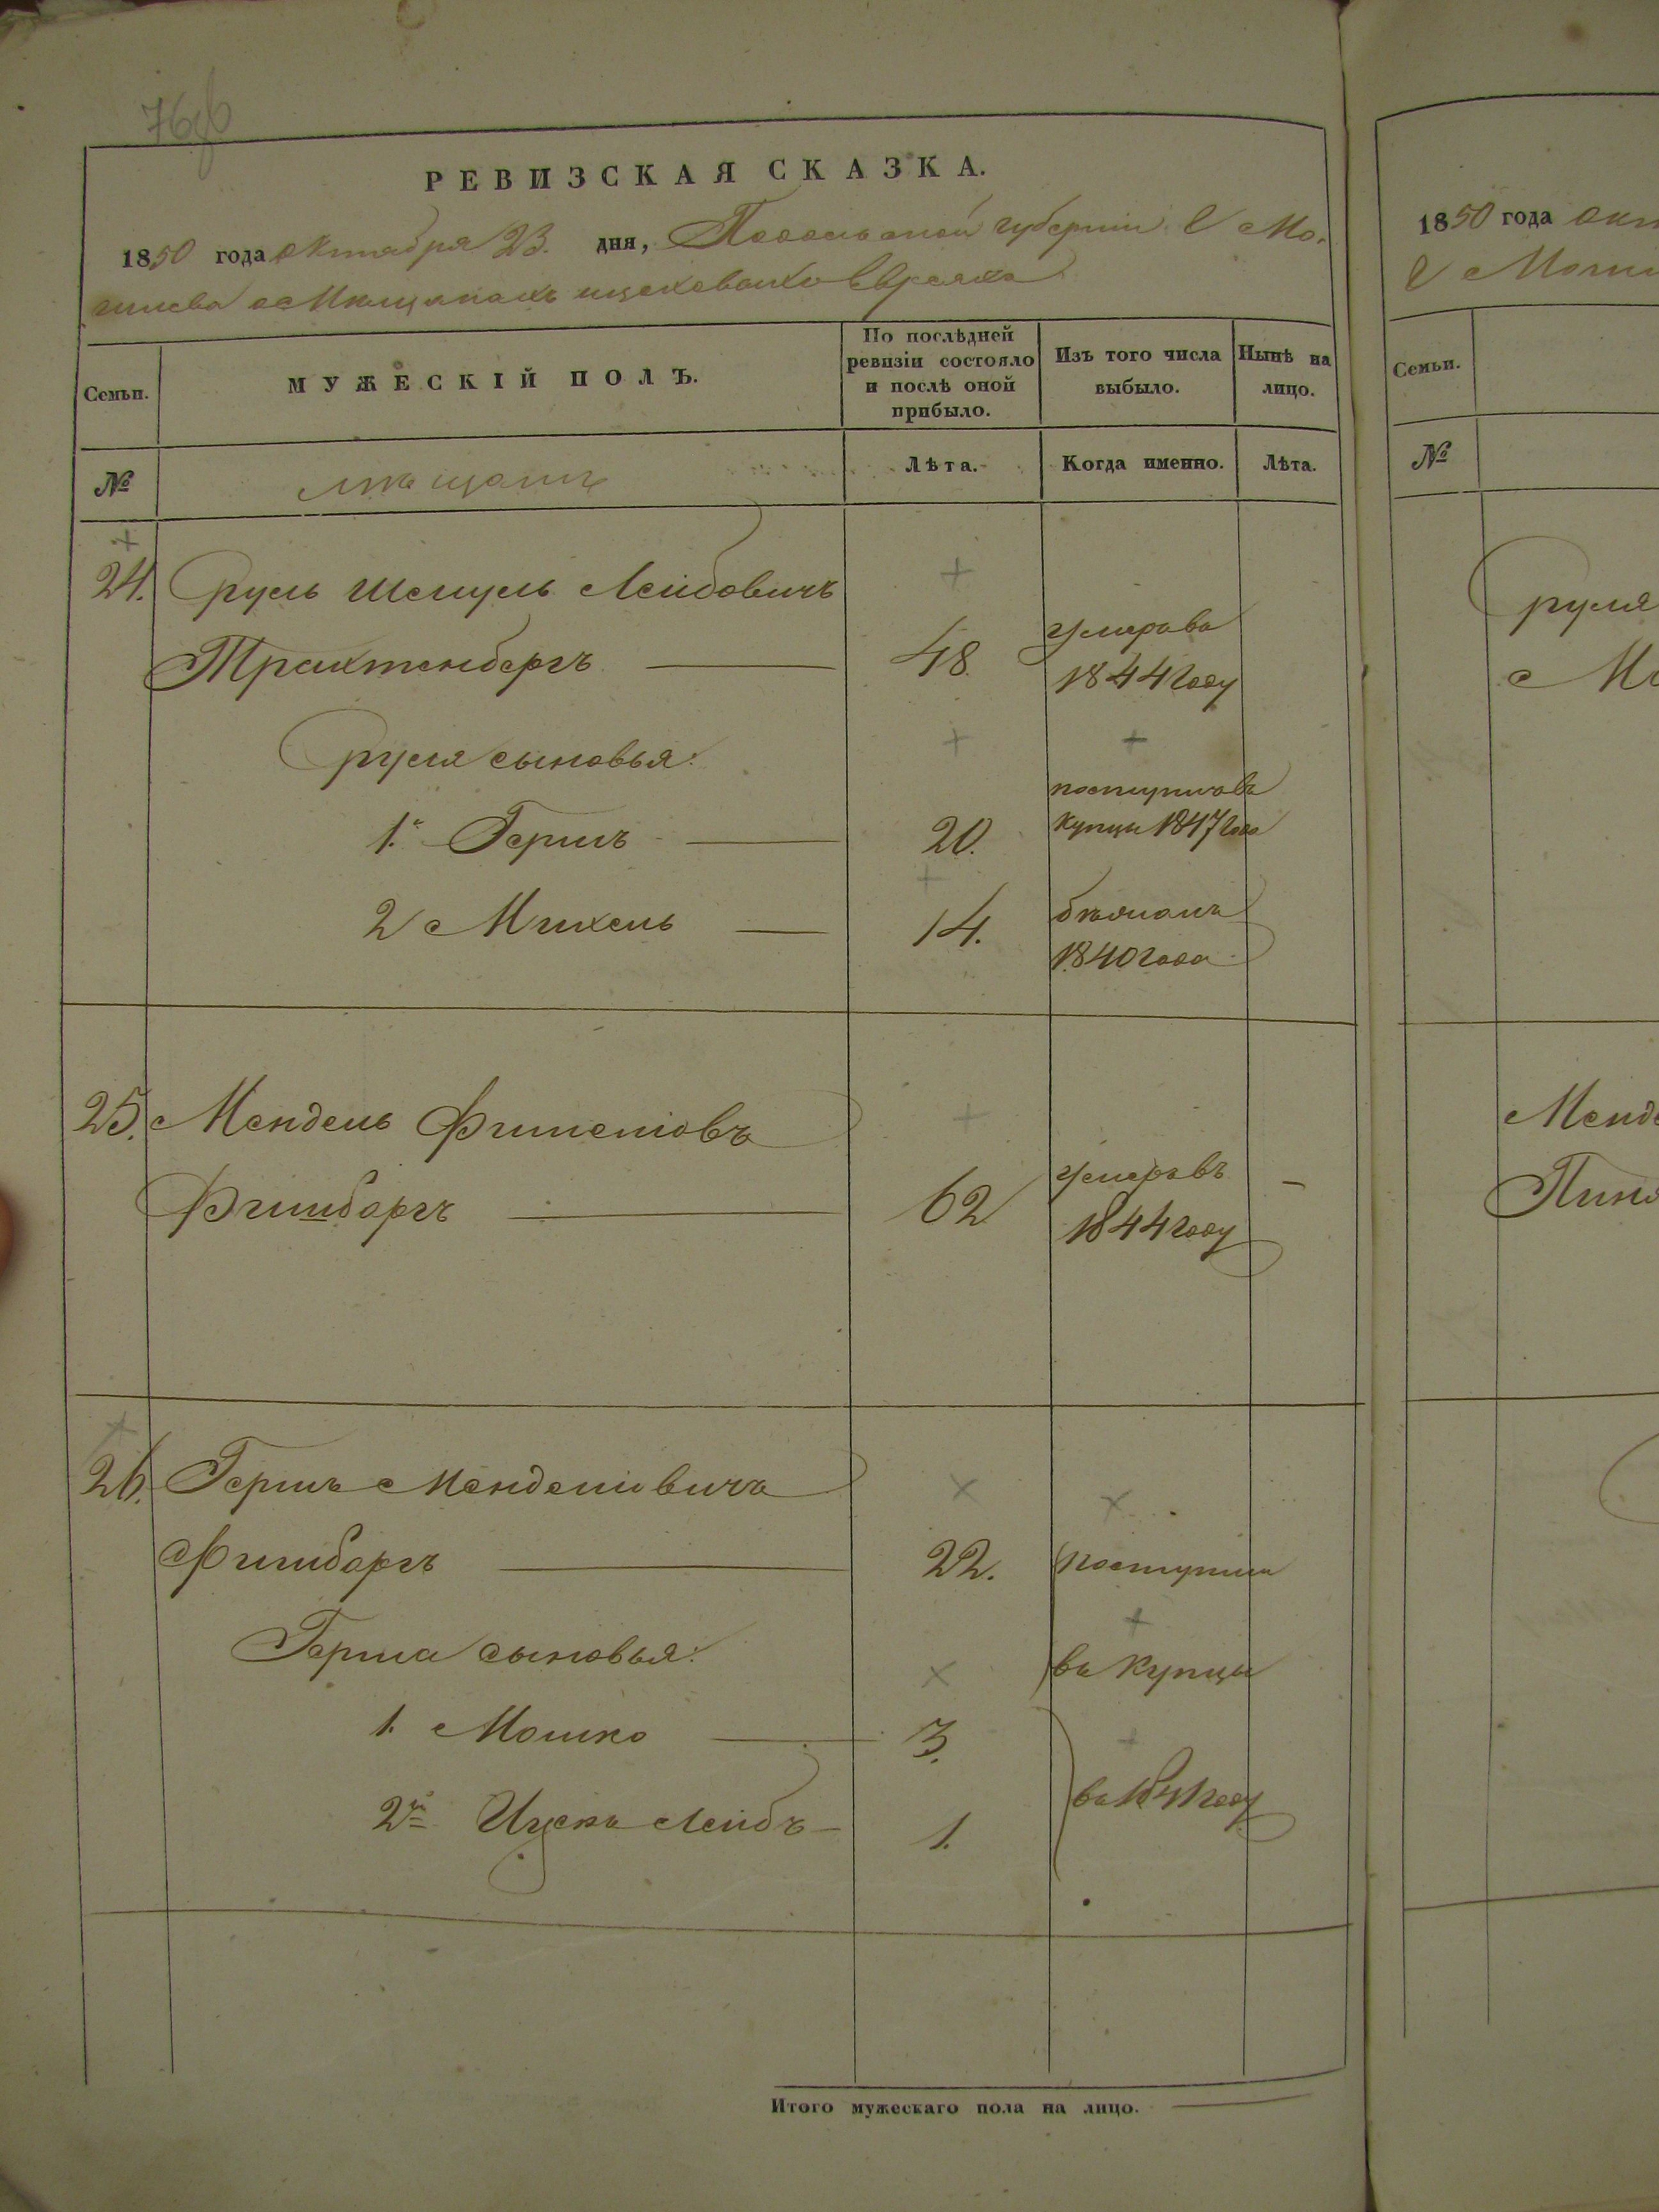 76об
РЕВИЗСКАЯ СКАЗКА.
1850 года октября 23. дня, Подольской губернии Мо-
гилева о Мещанахъ Евреяхъ
Семьи.
МУЖЕСКІЙ ПОЛЪ.
По послѣдней ревизіи состояло и послѣ оной прибыло.
Изъ того числа выбыло.
Нынѣ на лицо.
№
мещане
Лѣта.
Когда именно.
Лѣта.
24. Сруль Шмуль Лейбовичъ
Трахтенбергъ 48. умеръ въ
1844 году
Сруля сыновья:
1.й Гершъ 20. поступилъ въ
купцы 1847 года
2 Михель 14. бѣжалъ
1840 года
25. Мендель Фишелiовъ
Фишбаргъ 62 умеръ въ
1844 году
26. Гершъ Менделiовичъ
Фишбаргъ 22. поступили
Герша сыновья: въ купцы
1. Мошко 3.
2й Ицекъ Лейбъ 1. въ году
Итого мужескаго пола на лицо.
1850 года окт
Моги
Семьи.
№
Сруля
М
Менде